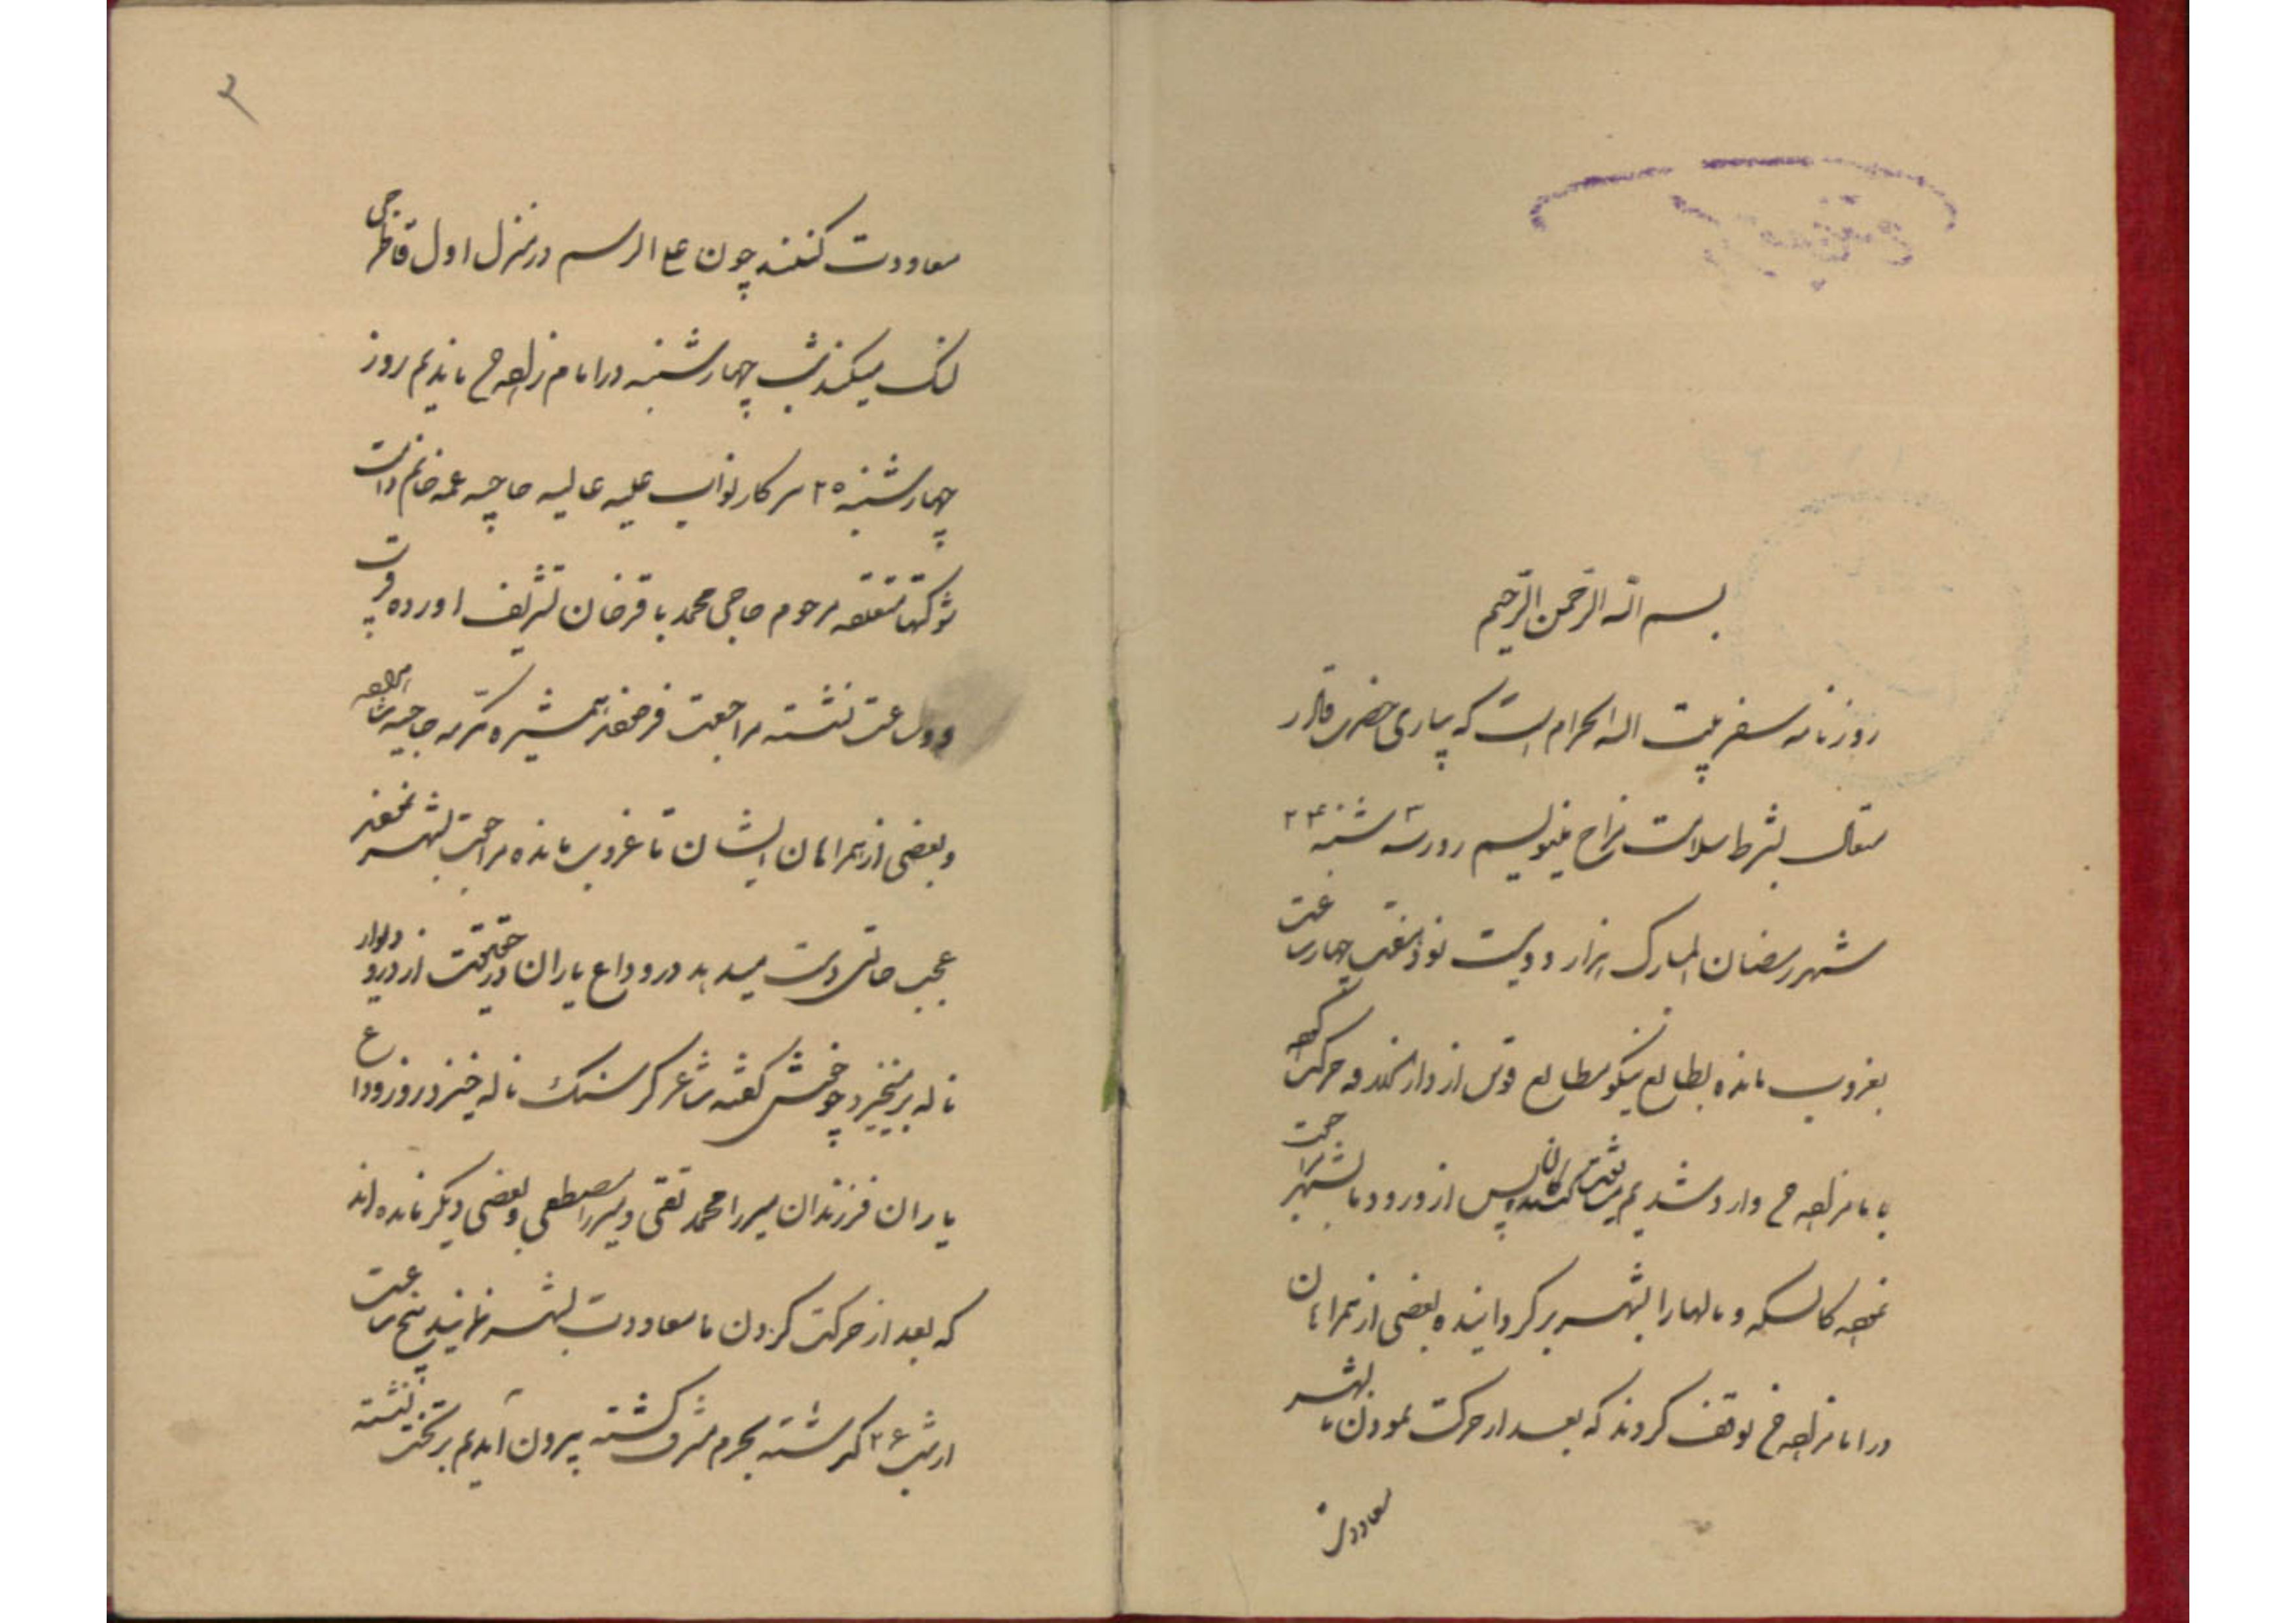 بسم الله الرحمن الرحیم
روزنامه سفر بیت الله الحرام است که بیاری حضرت قادر
متعال بشرط سلامت مزاج مینویسم روز سه شنبه ۲۴
شهر رمضان المبارک هزار و دویست نود و هفت چهار ساعت
بغروب مانده بطالع نیکو مطابع قوس از دروازه حرکت
بامامزاده وارد شدیم پس از ورود ما بشهر
کالسکه و مالها را بشهر برگردانیده بعضی از همراهان
در امامزاده توقف کردند که بعد از حرکت نمودن ما بشهر
معاودت
۳
معاودت کنند چون علی الرسم در منزل اول قاطرچی
لنگ میکند شب چهارشنبه در امامزاده ماندیم روز
چهارشنبه ۲۵ سرکار نواب علیه عالیه حاجیه عمه خانم دامت
شوکتها متعلقه مرحوم حاجی محمد باقرخان تشریف آورده
دو ساعت نشسته مراجعت فرمودند همشیره مکرمه حاجیه
و بعضی از همراهان ایشان تا غروب مانده مراجعت بشهر نمودند
عجب حالتی دست میدهد در وداع یاران در حقیقت از در و دیوار
ناله برمیخیزد چو خوش گفته شاعر کز سنگ ناله خیزد روز وداع
یاران فرزندان میرزا محمد تقی و میرزا مصطفی و بعضی دیگر مانده اند
که بعد از حرکت کردن ما معاودت بشهر نمایند پنج ساعت
از شب ۲۶ گذشته بحرم مشرف گشته بیرون آمدیم بر تخت نشسته